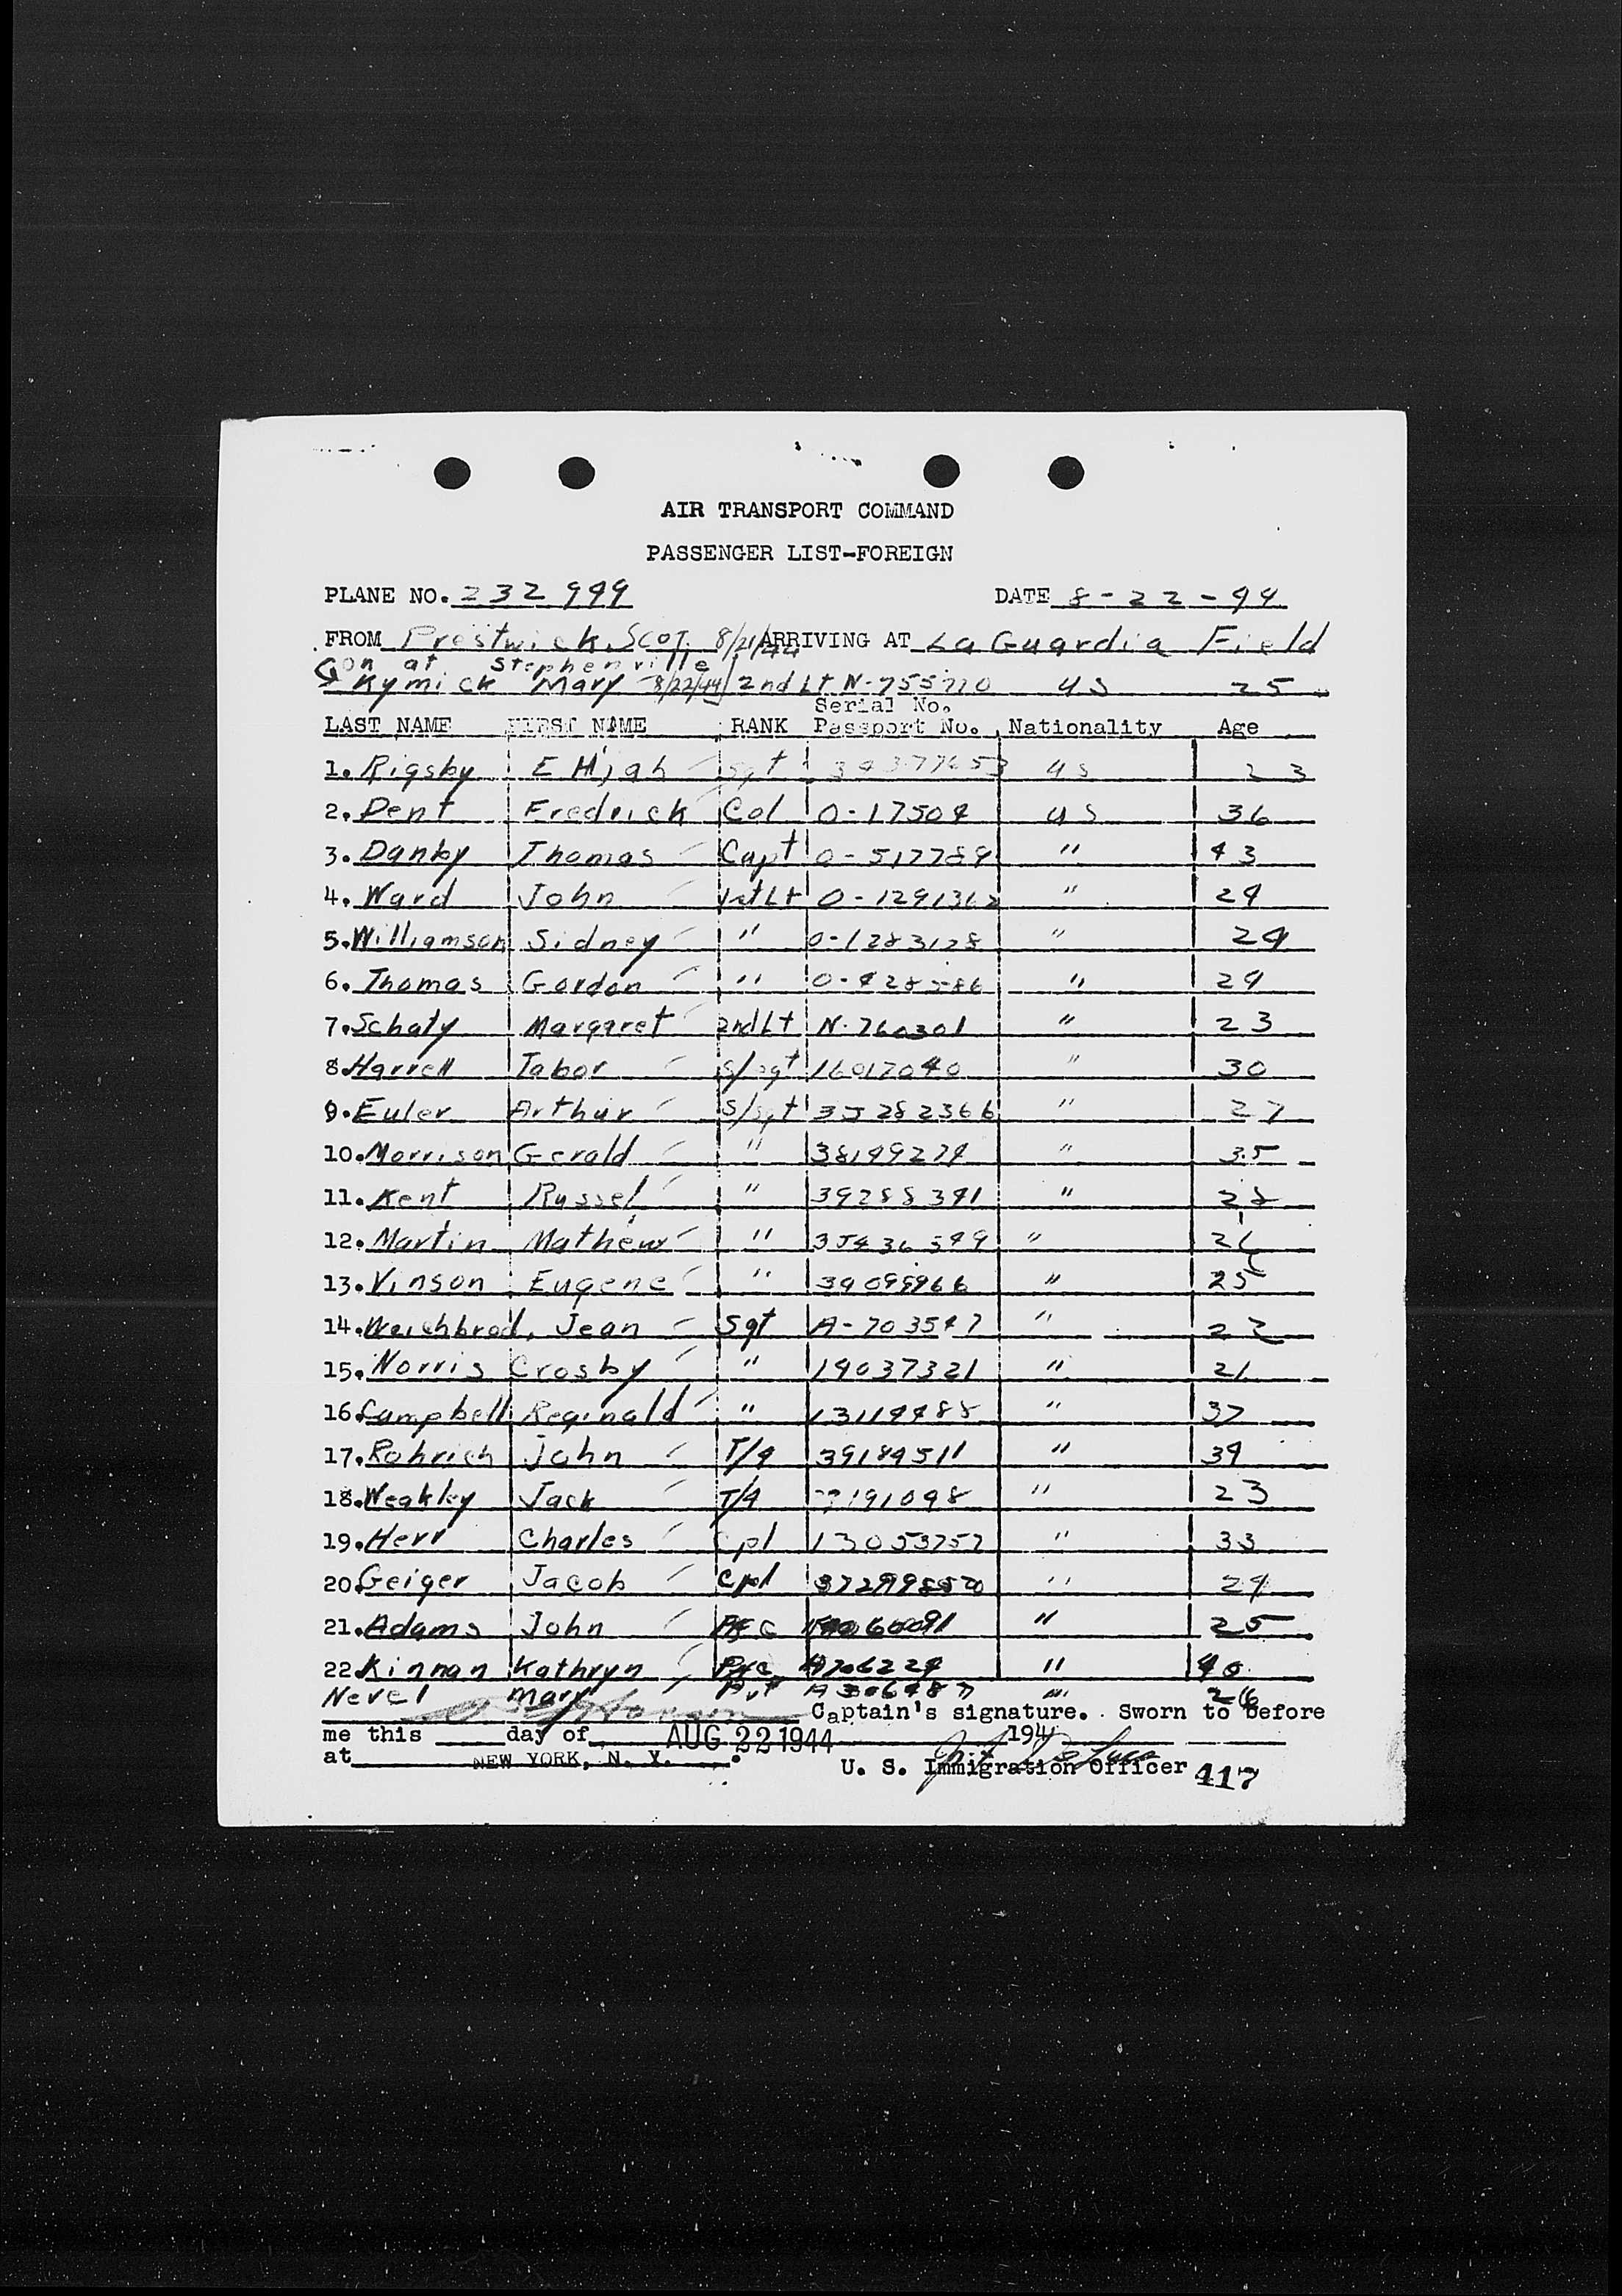 AIR TRANSPORT COMMAND
PASSENGER LIST-FOREIGN
PLANE NO. 232 949 DATE 8-22-44
FROM Prestwick, Scot. 8/21/44 ARRIVING AT La Guardia Field
on at Stephenville
Kymick Mary 8/22/44 2nd Lt N-755710 US 25
Serial No.
LAST NAME FIRST NAME RANK Passport No. Nationality Age
1. Rigsby Elijah Sgt 34377653 US 23
2. Dent Fredrick Col O-17504 US 36
3. Danby Thomas Capt O-517784 " 43
4. Ward John 1st Lt O-1291362 " 24
5. Williamson Sidney " O-1283128 " 24
6. Thomas Gordon " " 24
7. Schaty Margaret 2nd Lt N-760301 " 23
8. Harrell Tabor S/Sgt 16017040 " 30
9. Euler Arthur S/Sgt 35282366 " 27
10. Morrison Gerald " 38149274 " 35
11. Kent Russel " 39288341 " 28
12. Martin Mathew " 35436549 "
13. Vinson Eugene " " 25
14. Weichbrod, Jean Sgt A-703547 " 22
15. Norris Crosby " 14037321 " 21
16. Campbell Reginald " 13114488 " 37
17. Rohrich John T/4 39184511 " 34
18. Weakley Jack T/4 " 23
19. Herr Charles Cpl 13053757 " 33
20. Geiger Jacob Cpl " 24
21. Adams John Pfc " 25
22. Kinnan Kathryn Pfc A706224 " 40
Nevel Mary Pvt A306487 " 26
Captain's signature. Sworn to before
me this day of AUG 22 1944 194
at NEW YORK, N. Y. U. S. Immigration Officer 417